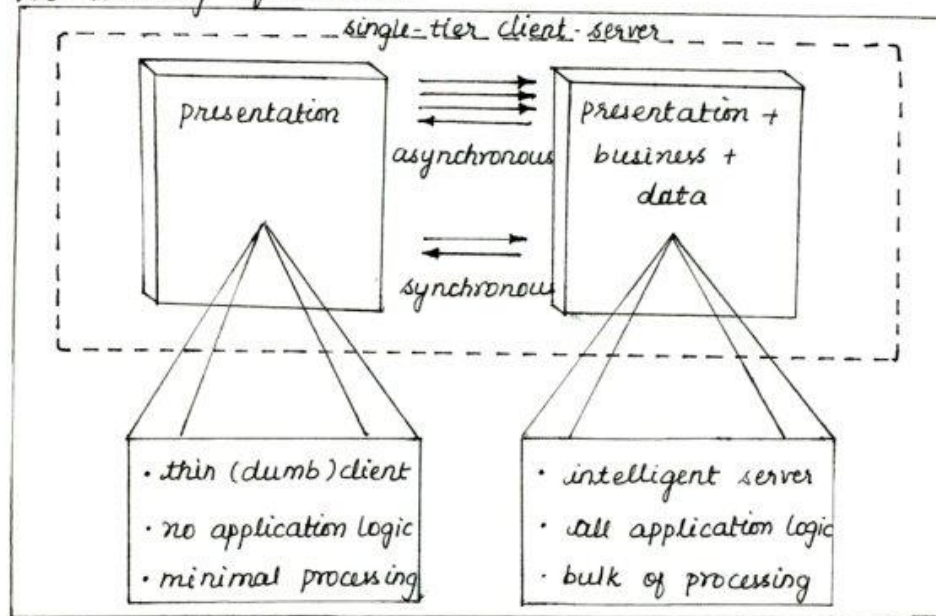 single-tier client-server
presentation
asynchronous
synchronous
presentation +
business +
data
• thin (dumb) client
• no application logic
• minimal processing
• intelligent server
• all application logic
• bulk of processing